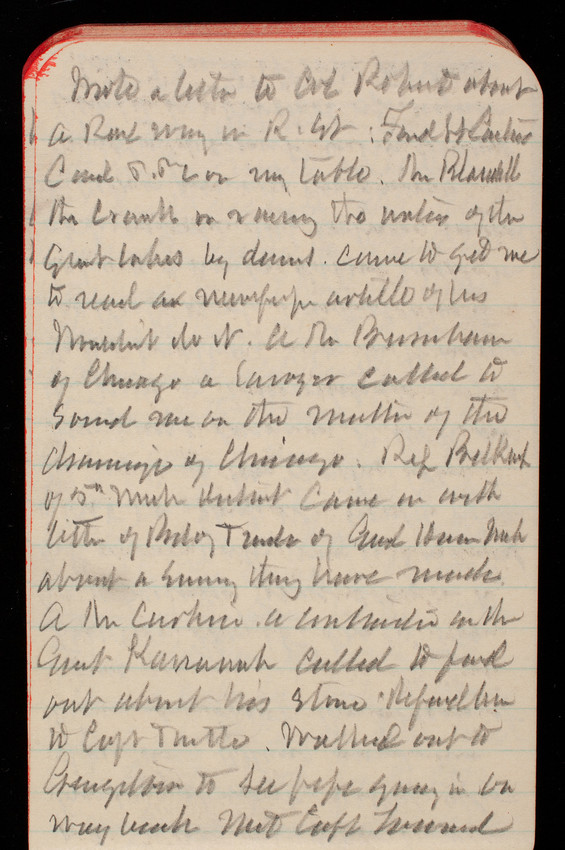 Wrote a letter to Col Robert about
a Road way in R. Ist. Found H
Card on my table. Mr Blaisdell
the Crank on raising the waters of the
Great Lakes by dams. came to get me
to read a newspaper article of his
Wouldn't do it. A Mr Burnham
of Chicago a Lawyer called to
sound me on the matter of the
drainage of Chicago. Rep Belknap
of 5th Mich district came in with
letter of Bd of Trade of Grand Haven Mich
about a Survey they have made.
A Mr a contractor on the
Great Kanawha called to find
out about his stone. Refered him
to Capt Turtle. Walked out to
to see papa going in on
way back Met Capt